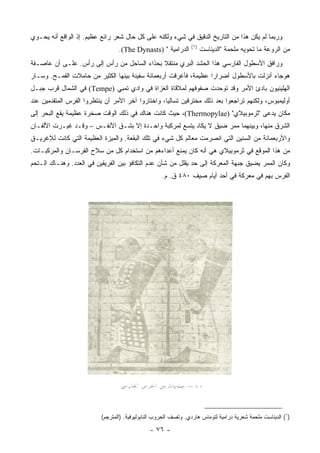 وربما لم يكن هذا من التاريخ الدقيق في شيء ولكنه على كل حال شعر رائع عظيم. إذ الواقع أنه يحـوي
من الروعة ما تحويه ملحمة "الديناست (*) الدرامية " (The Dynasts).
ورافق الأسطول الفارسي هذا الحشد البري متنقلا بحذاء الساحل من رأس إلى رأس. علـى أن عاصـفة
هوجاء أنزلت بالأسطول أضرارا عظيمة، فأغرقت أربعمائة سفينة بينها الكثير من حاملات القمـح. وسـار
الهلينيون بادئ الأمر وقد توحدت صفوفهم لملاقاة الغزاة في وادي تمبي (Tempe) في الشمال قرب جبـل
أوليمبوس، ولكنهم تراجعوا بعد ذلك مخترقين تساليا، واختاروا آخر الأمر أن ينتظروا الفرس المتقدمين عند
مكان يدعى "ثرموبيلاي" (Thermopylae)، حيث كانت هناك في ذلك الوقت صخرة عظيمة يقع البحر إلى
الشرق منها، وبينهما ممر ضيق لا يكاد يتسع لمركبة واحـدة إلا بشـق الأنفـس - وقـد غيـرت الألفـان
والأربعمائة من السنين التي انصرمت معالم كل شيء في تلك البقعة. والميزة العظيمة التي كانت للإغريـق
من هذا الموقع في ثرموبيلاي هي أنه كان يمنع أعداءهم من استخدام كل من سلاح الفرسـان والمركبـات.
وكان الممر يضيق جبهة المعركة إلى حد يقلل من شأن عدم التكافؤ بين الفريقين في العدد. وهنـاك الـتحم
الفرس بهم في معركة في أحد أيام صيف ٤٨٠ ق. م.
(*) الديناست ملحمة شعرية درامية لتوماس هاردي. وتصف الحروب النابوليوفية. (المترجم)
- ٧٦ -